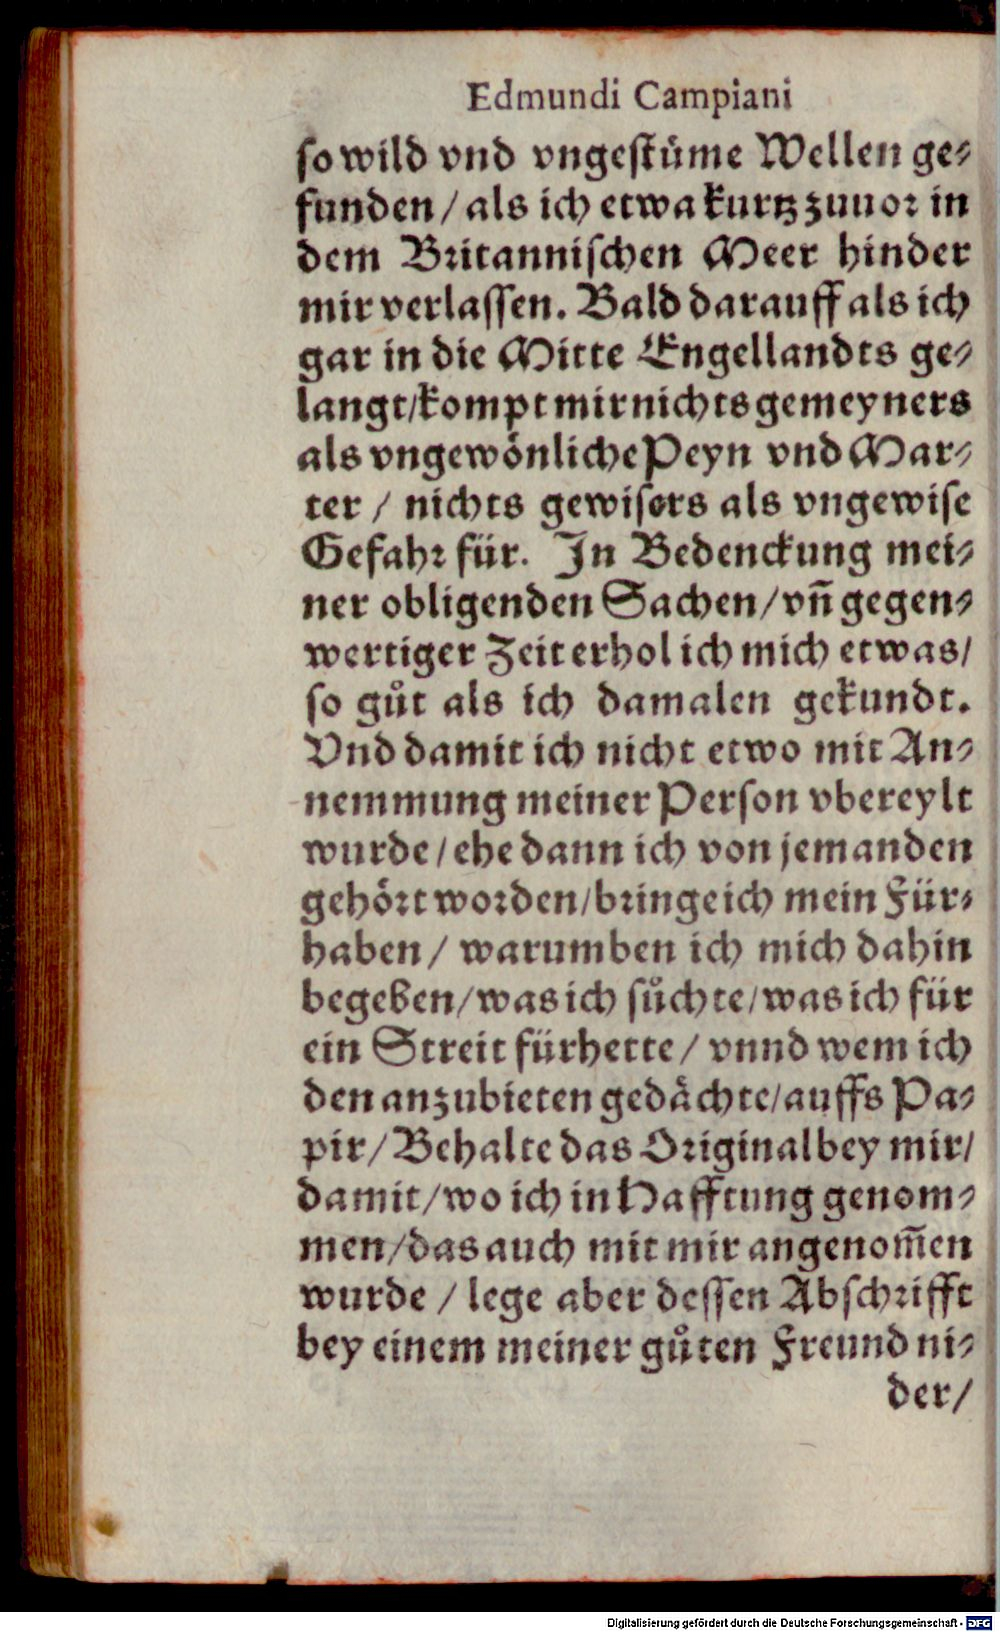 Edmundi Campiani
ſo wild vnd vngeſtuͤme Wellen ge⸗
funden / als ich etwa kurtz zuuor in
dem Britanniſchen Meer hinder
mir verlaſſen. Bald darauff als ich
gar in die Mitte Engellandts ge⸗
langt/kompt mir nichts gemeyners
als vngewoͤnliche Peyn vnd Mar⸗
ter / nichts gewiſers als vngewiſe
Gefahr für. In Bedenckung mei⸗
ner obligenden Sachen/vñ gegen⸗
wertiger Zeit erhol ich mich etwas/
ſo guͦt als ich damalen gekundt.
Vnd damit ich nicht etwo mit An⸗
nemmung meiner Perſon vbereylt
wurde / ehe dann ich von jemanden
gehoͤrt worden/bringe ich mein Für⸗
haben / warumben ich mich dahin
begeben/was ich ſuͦchte/was ich für
ein Streit fürhette / vnnd wem ich
den anzubieten gedaͤchte/auffs Pa⸗
pir/ Behalte das Original bey mir/
damit/wo ich in Hafftung genom⸗
men/das auch mit mir angenom̃en
wurde / lege aber deſſen Abſchrifft
bey einem meiner guͦten Freund ni⸗
der/
Digitalisierung gefördert durch die Deutsche Forschungsgemeinschaft - DFG